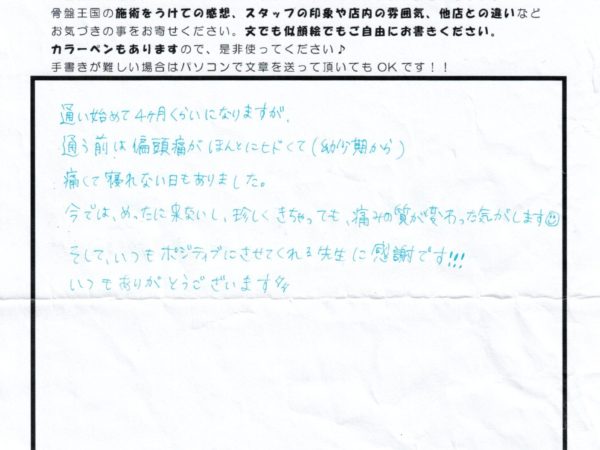 骨盤王国の施術をうけての感想、スタッフの印象や店内の雰囲気、他店との違いなど
お気づきの事をお寄せください。文でも似顔絵でもご自由にお書きください。
カラーペンもありますので、是非使ってください♪
手書きが難しい場合はパソコンで文章を送って頂いてもOKです！！
通い始めて4ヶ月くらいになりますが、
通う前は偏頭痛がほんとにヒドくて(幼少期から)
痛くて寝れない日もありました。
今では、めったに来ないし、珍しくきちゃっても、痛みの質が変わった気がします☺
そして、いつもポジティブにさせてくれる先生に感謝です!!!
いつもありがとうございます